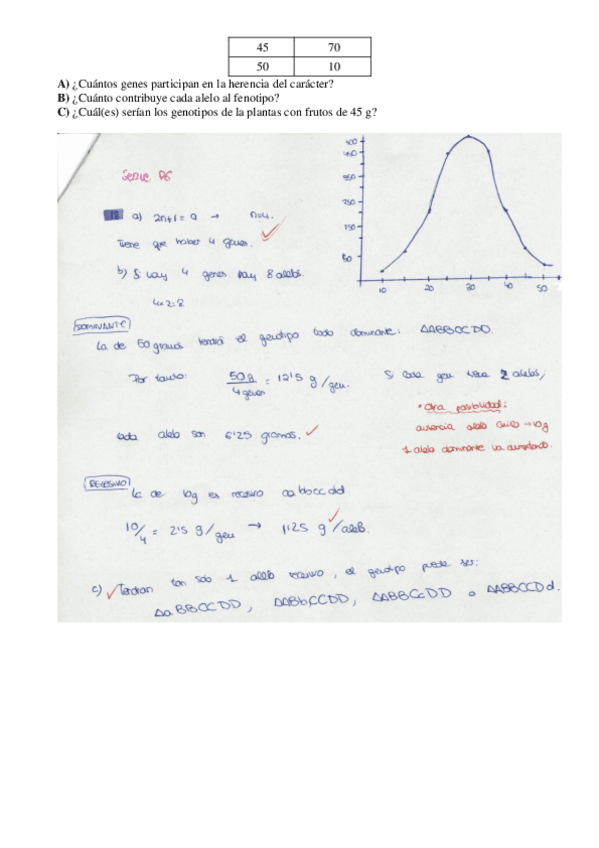 45 70
50 10
A) ¿Cuántos genes participan en la herencia del carácter?
B) ¿Cuánto contribuye cada alelo al fenotipo?
C) ¿Cuál(es) serían los genotipos de la plantas con frutos de 45 g?
500
450
350
250
150
50
10 20 30 40 50
Serie P5
15 a) 2n+1 = 9 → n=4.
Tiene que haber 4 genes.
b) Si hay 4 genes hay 8 alelos.
4x2=8
DOMINANTE
La de 50 gramos tendrá el genotipo todo dominante: AABBCCDD.
Por tanto: 50g / 4 genes = 12'5 g/gen. Si cada gen tiene 2 alelos,
cada alelo son 6'25 gramos.
* Otra posibilidad:
ausencia alelo → 10g
1 alelo dominante va aumentando.
RECESIVO
La de 10g es recesivo aabbccdd
10/4 = 2'5 g/gen → 1'25 g/alelo.
c) Tendrían tan sólo 1 alelo recesivo, el genotipo puede ser:
AaBBCCDD, AABbCCDD, AABBCcDD o AABBCCDd.